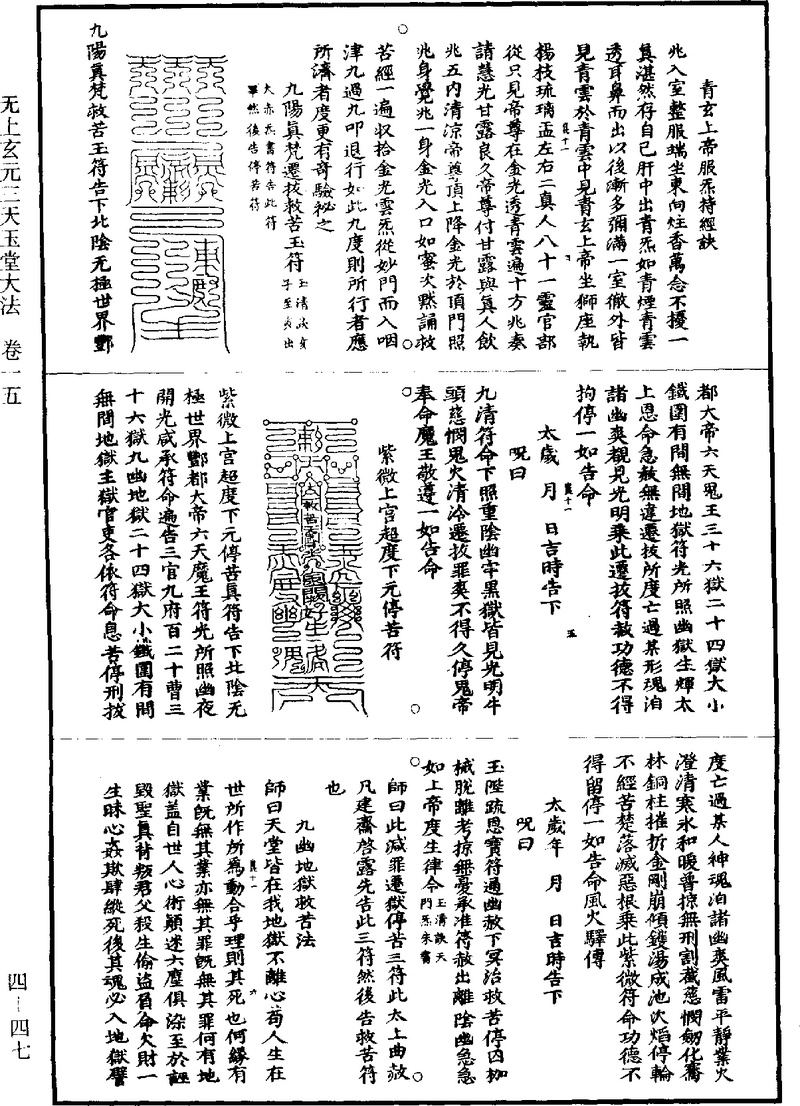 无上玄元三天玉堂大法　卷一五
四—四七
青玄上帝服炁持經訣
兆入室整服端坐東向炷香萬念不擾一
真湛然存自己肝中出青炁如青煙青雲
透耳鼻而出以後漸多彌滿一室徹外皆
見青雲於青雲中見青玄上帝坐獅座執
楊枝琉璃盂左右二真人八十一靈官部
從只見帝尊在金光透青雲遍十方兆奏
請慧光甘露良久帝尊付甘露與真人飲
兆五內清涼帝尊頂上降金光於頂門照
兆身覺兆一身金光入口如蜜次默誦救
苦經一遍収拾金光雲炁從妙門而入咽
津九過九叩退行如此九度則所行者應
所濟者度更有奇驗祕之
九陽真梵遷拔救苦玉符
九陽真梵救苦玉符告下北陰无極世界酆
都大帝六天鬼王三十六獄二十四獄大小
鐵圍有間無間地獄符光所照幽獄生輝太
上恩命急赦無違遷拔所度亡過某形魂泊
諸幽爽覩見光明乘此遷拔符赦功德不得
拘停一如告命
太歲　月　日吉時告下
呪曰
九清符命下照重陰幽牢黑獄皆見光明牛
頭慈憫鬼火清冷遷拔罪爽不得久停鬼帝
奉命魔王敬遵一如告命
紫微上宮超度下元停苦符
紫微上宮超度下元停苦真符告下北陰无
極世界酆都大帝六天魔王符光所照幽夜
開光咸承符命遍告三官九府百二十曹三
十六獄九幽地獄二十四獄大小鐵圍有間
無間地獄主獄官吏各依符命息苦停刑拔
度亡過某人神魂泊諸幽爽風雷平靜業火
澄清寒氷和暖普掠無刑割截慈憫劒化喬
林銅柱摧折金剛崩傾鑊湯成池火焰停輪
不經苦楚落滅惡根乘此紫微符命功德不
得留停一如告命風火驛傳
太歲年　月　日吉時告下
呪曰
玉陛疏恩寶符通幽赦下冥治救苦停囚枷
械脫離考掠無憂承准符赦出離陰幽急急
如上帝度生律令
師曰此減罪遷獄停苦三符此太上曲赦
凡建齋啓露先告此三符然後告救苦符
也
九幽地獄救苦法
師曰天堂皆在我地獄不離心苟人生在
世所作所為動合乎理則其死也何緣有
業既無其業亦無其罪既無其罪何有地
獄蓋自世人心術顛迷六塵俱染至於誣
毀聖真背叛君父殺生偷盜負命欠財一
生昧心姦欺肆縱死後其魂必入地獄譬